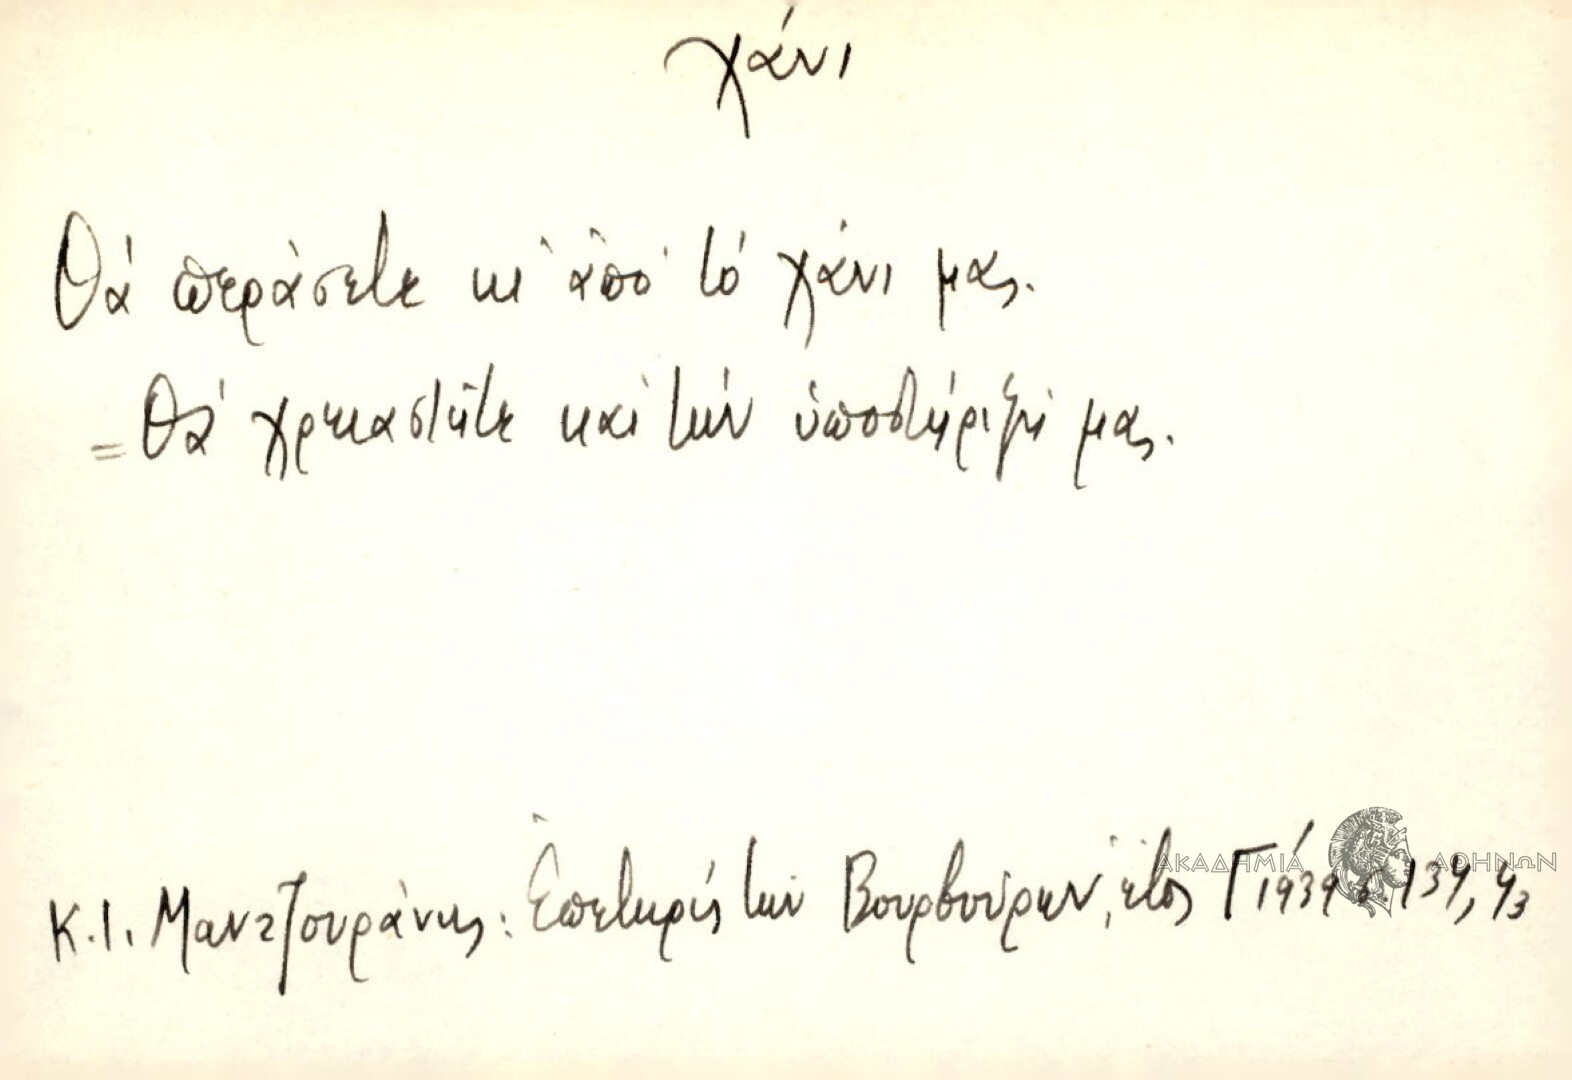 χάνι
Θά περάσετε κι ἀπό τό χάνι μας.
= Θά χρειαστῆτε καί τήν ὑποστήριξή μας.
Κ.Ι. Μαντζουράνης: Ἐπετηρίς τῶν Βουρβούρων, ἔτος Γ΄ 1939 σ 134, 43
ΑΚΑΔΗΜΙΑ ΑΘΗΝΩΝ